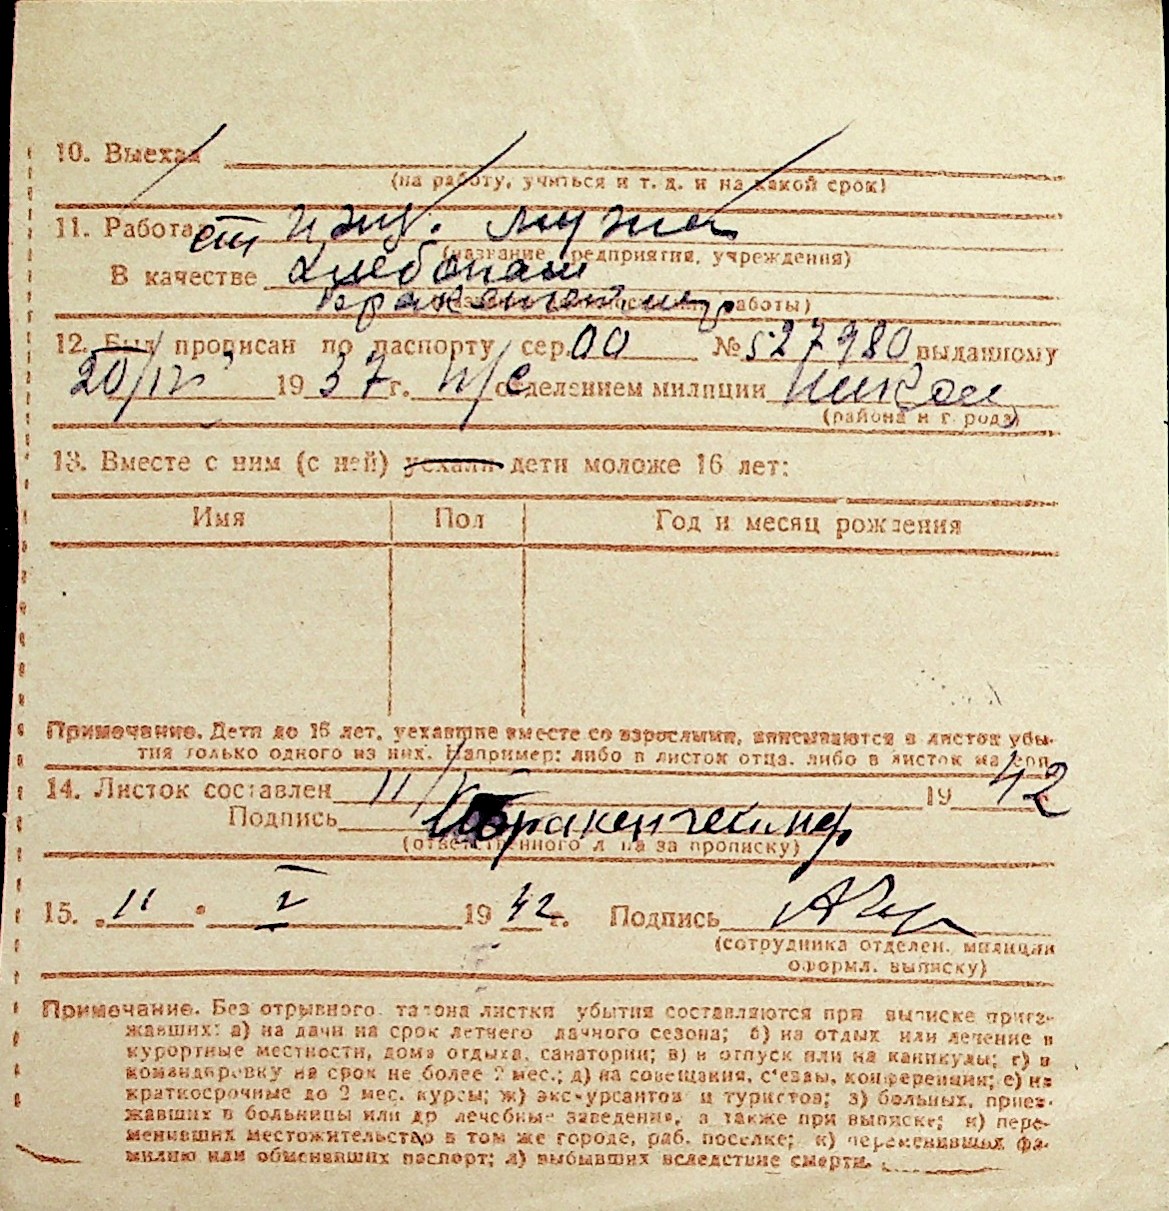 10. Выехал
(на работу, учиться и т. д. и на какой срок)
11. Работа
ст изд. мужа
(название предприятия, учреждения)
В качестве
работы)
12. Был прописан по паспорту сер. 00 № 527980 выданному
20/IV 1937 г. н/с отделением милиции Никол
(района и города)
13. Вместе с ним (с ней) уехали дети моложе 16 лет:
Имя Пол Год и месяц рождения
Примечание. Дети до 16 лет, уехавшие вместе со взрослыми, вписываются в листок убы-
тия только одного из них. Например: либо в листок отца, либо в листок матери
14. Листок составлен 11/ 1942
Подпись
(ответственного лица за прописку)
15. „11" V 1942 г. Подпись
(сотрудника отделен. милиции
оформл. выписку)
Примечание. Без отрывного талона листки убытия составляются при выписке приез-
жавших: а) на дачи на срок летнего дачного сезона; б) на отдых или лечение в
курортные местности, дома отдыха, санатории; в) в отпуск или на каникулы; г) в
командировку на срок не более 2 мес.; д) на совещания, съезды, конференции; е) на
краткосрочные до 2 мес. курсы; ж) экскурсантов и туристов; з) больных, приез-
жавших в больницы или др лечебные заведения, а также при выписке; и) пере-
менивших местожительство в том же городе, раб. поселке; к) переменивших фа-
милию или обменявших паспорт; л) выбывших вследствие смерти.